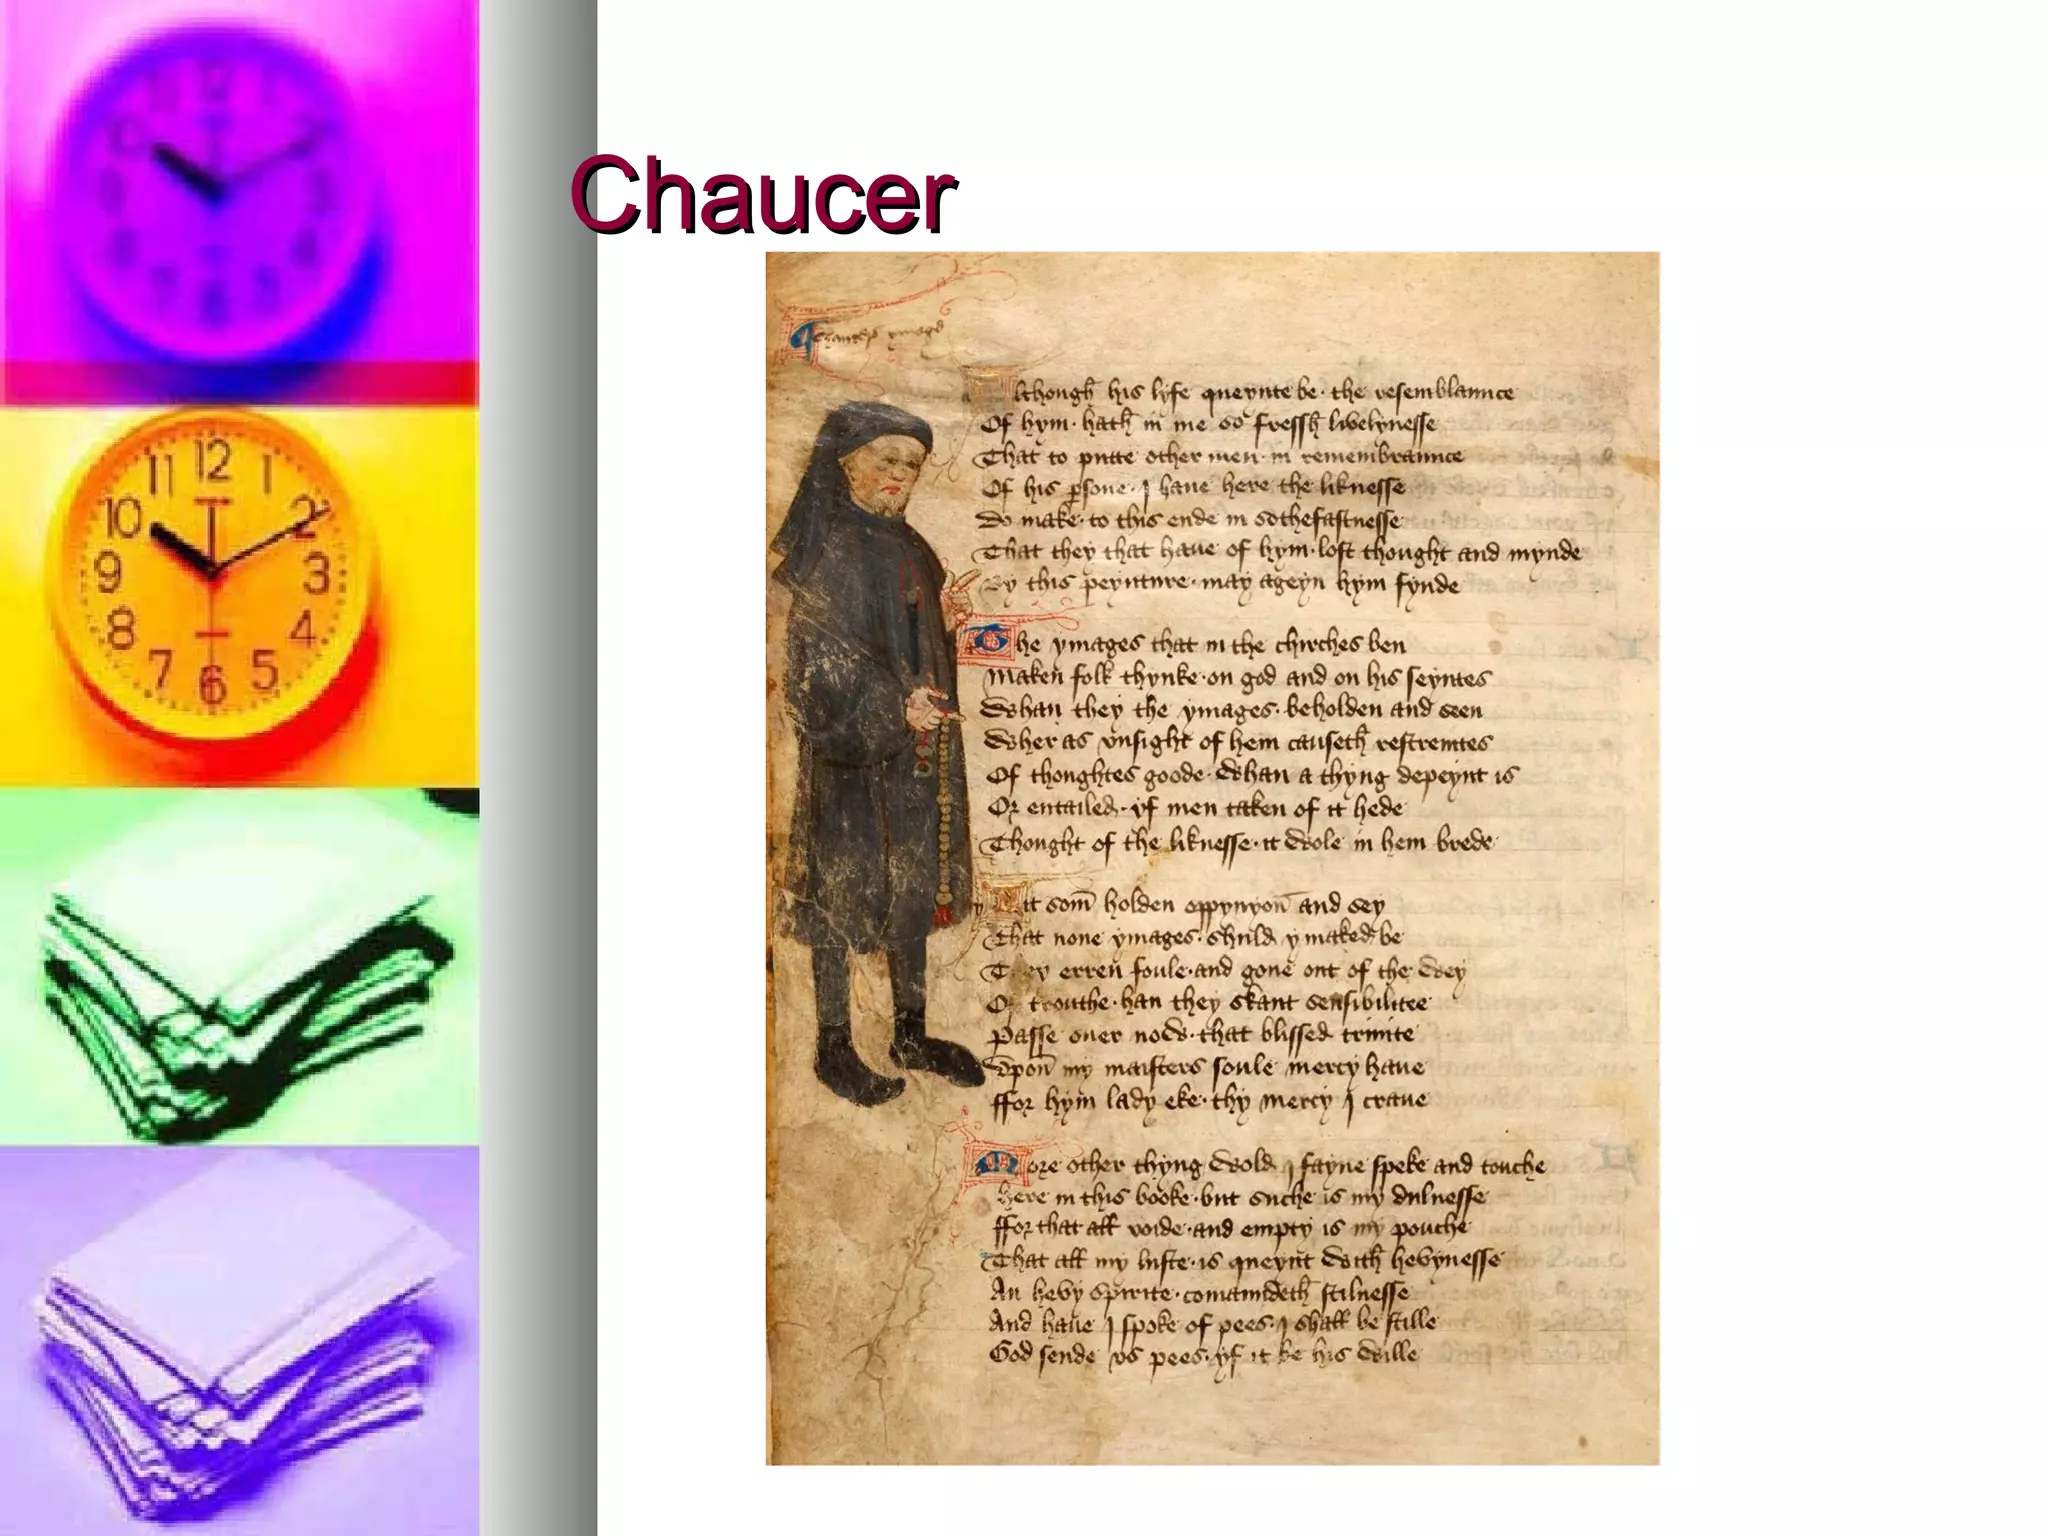 Chaucer
Chaucers ymage
Although his lyfe queynte be the resemblaunce
Of hym hath in me so fressh lyvelynesse
That to putte other men in remembraunce
Of his persone I have here the liknesse
Do make to this ende in sothefastnesse
That they that have of hym lost thought and mynde
By this peynture may ageyn hym fynde
The ymages that in the chirches ben
Maken folk thynke on god and on his seyntes
Whan they the ymages beholden and seen
Wher as unsight of hem causeth restreintes
Of thoughtes goode Whan a thyng depeynt is
Or entailed yf men taken of it hede
Thought of the liknesse it wole in hem brede
Yit som holden oppynyon and sey
That none ymages shuld ymaked be
They erren foule and gone out of the wey
Of trouthe han they skant sensibilitee
Passe over now that blissed trinite
Upon my maisters soule mercy have
ffor hym lady eke thy mercy I crave
More other thyng wold I fayne speke and touche
here in this booke but suche is my dulnesse
ffor that all voide and empty is my pouche
That all my luste is queynt with hevynesse
An hevy spirite comaundeth stilnesse
And have I spoke of pees I shall be stille
God sende us pees yf it be his wille
12
1
2
3
4
5
6
7
8
9
10
11